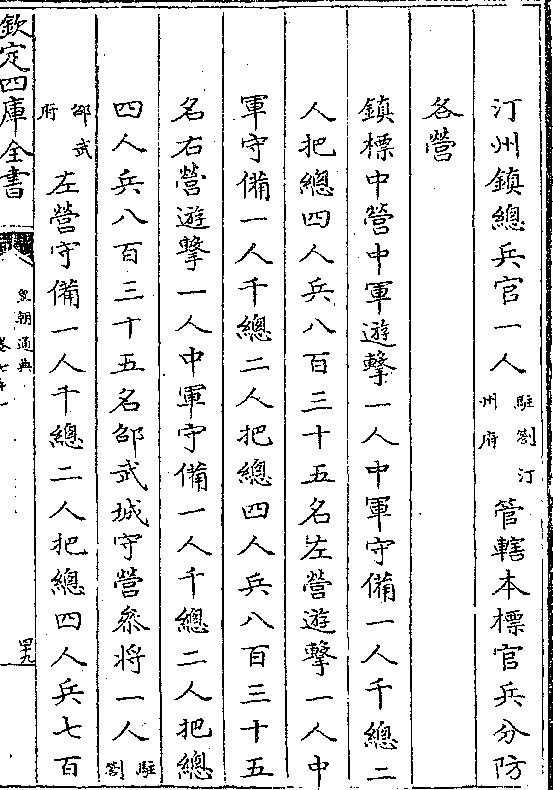 汀州鎮總兵官一人駐劄汀州府管轄本標官兵分防
各營
鎮標中營中軍遊擊一人中軍守備一人千總二
人把總四人兵八百三十五名左營遊擊一人中
軍守備一人千總二人把總四人兵八百三十五
名右營遊擊一人中軍守備一人千總二人把總
四人兵八百三十五名邵武城守營叅將一人駐劄
邵武府左營守備一人千總二人把總四人兵七百
欽定四庫全書
皇朝通典
四九